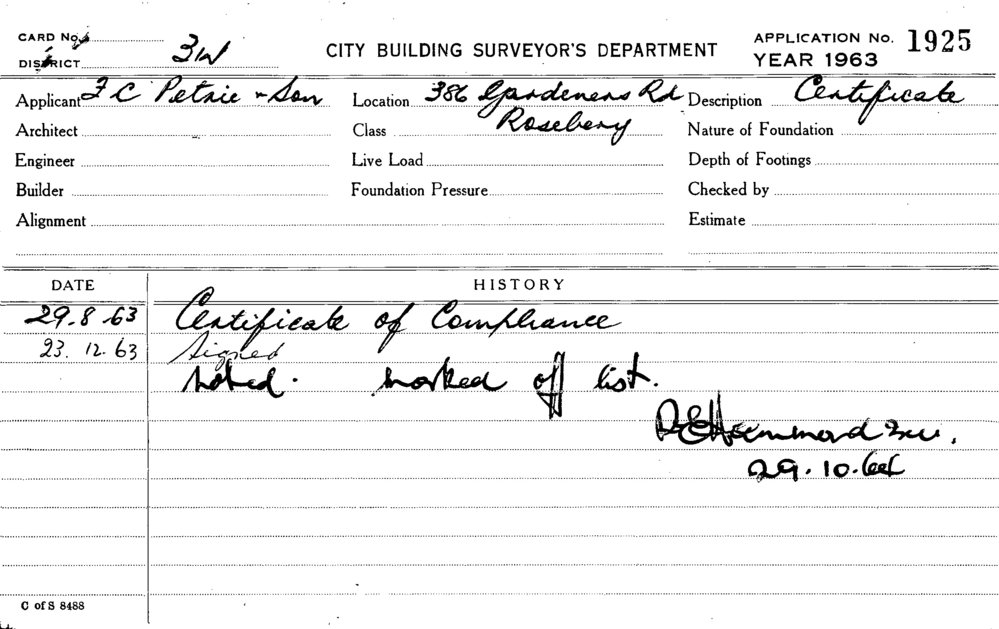 CARD No.
DISTRICT 3W
CITY BUILDING SURVEYOR'S DEPARTMENT
APPLICATION No. 1925
YEAR 1963
Applicant F C Petrie & Son Location 386 Gardeners Rd Description Certificate
Architect Class Rosebery Nature of Foundation
Engineer Live Load Depth of Footings
Builder Foundation Pressure Checked by
Alignment Estimate
DATE HISTORY
29.8.63 Certificate of Compliance
23.12.63 Signed
Noted. marked off list.
Hammond
29.10.
C of S 8488